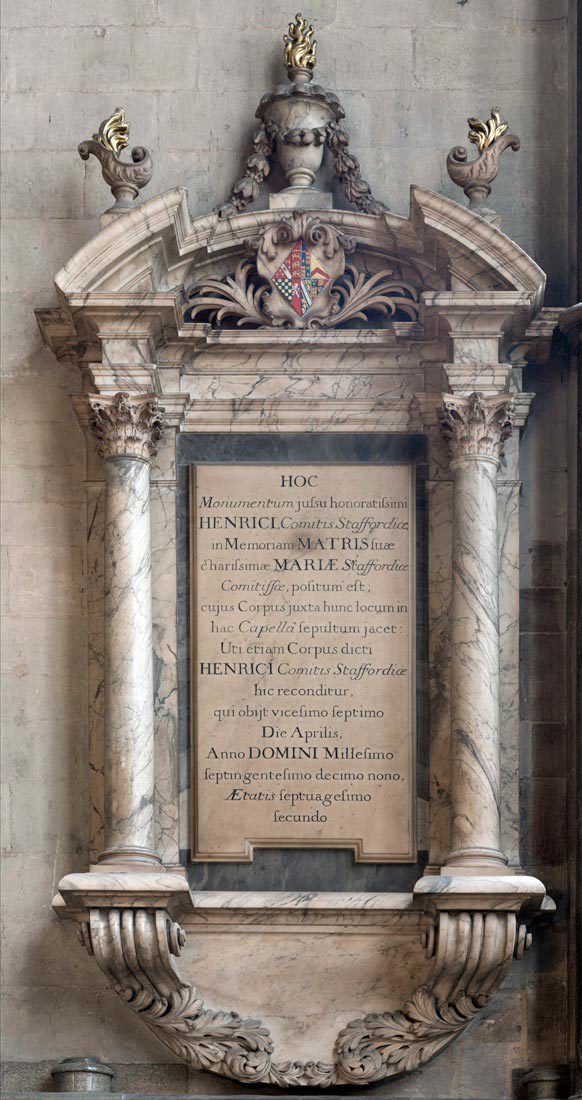 HOC
Monumentum juſsu honoratiſsimi
HENRICI, Comitis Staffordiæ
in Memoriam MATRIS ſuæ
Chariſsimæ MARIÆ Staffordiæ
Comitiſſæ, poſitum eſt;
cujus Corpus juxta hunc locum in
hac Capellâ ſepultum jacet:
Uti etiam Corpus dicti
HENRICI Comitis Staffordiæ
hic reconditur,
qui obijt viceſimo ſeptimo
Die Aprilis,
Anno DOMINI Milleſimo
ſeptingenteſimo decimo nono,
Ætatis ſeptuageſimo
ſecundo